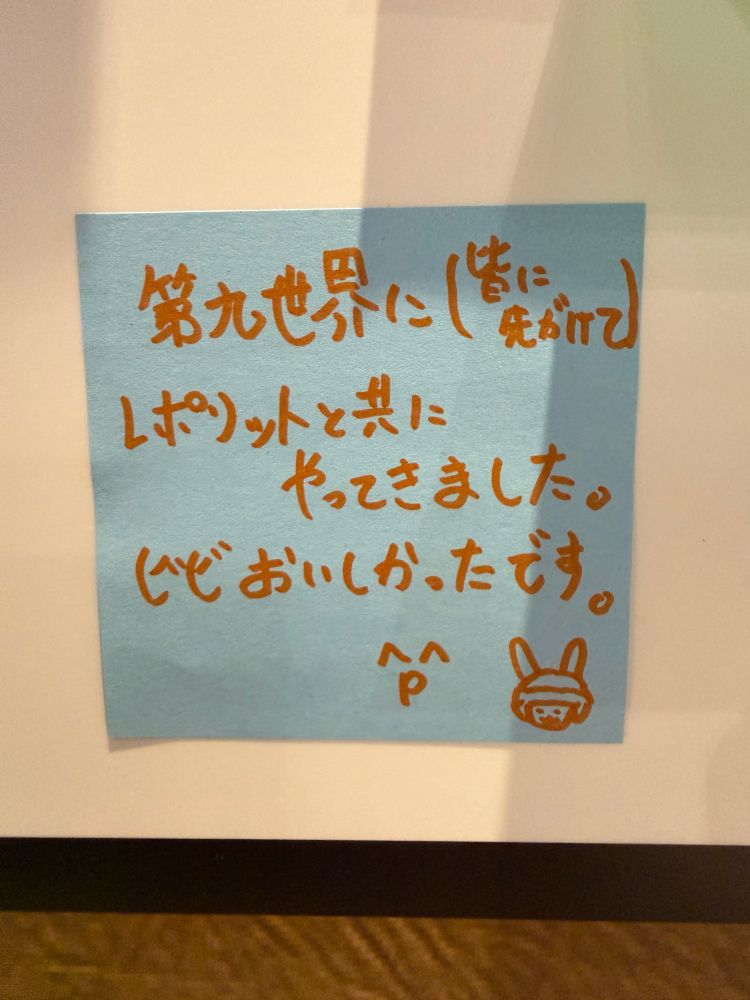 第九世界に(皆に先がけて)
レポリットと共に
やってきました。
おいしかったです。
^p^